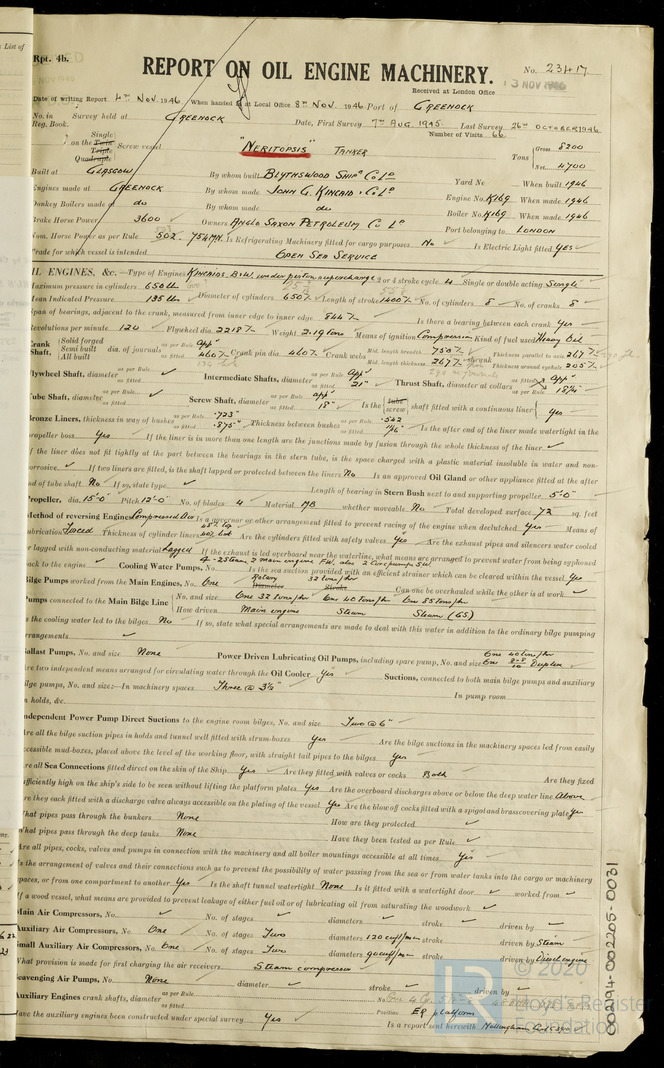 List of
Rpt. 4b.
REPORT ON OIL ENGINE MACHINERY.
No. 23417
13 NOV 1946
Received at London Office
Date of writing Report 4th Nov. 1946 When handed in at Local Office 8th Nov. 1946 Port of GREENOCK
No. in Survey held at GREENOCK Date, First Survey 7th AUG 1945 Last Survey 26th OCTOBER 1946
Reg. Book. Number of Visits 66
Single
on the Twin Screw vessel "NERITOPSIS" TANKER
Triple
Quadruple
Tons Gross 8200
Net 4700
Built at GLASGOW By whom built BLYTHSWOOD SHIPG Co Ld Yard No. When built 1946
Engines made at GREENOCK By whom made JOHN G. KINCAID & Co Ld Engine No. K169 When made 1946
Donkey Boilers made at do By whom made do Boiler No. K169 When made 1946
Brake Horse Power 3600 Owners ANGLO SAXON PETROLEUM Co Ld Port belonging to LONDON
Nom. Horse Power as per Rule 502. 754 MN. Is Refrigerating Machinery fitted for cargo purposes No Is Electric Light fitted Yes
Trade for which vessel is intended OPEN SEA SERVICE
II. ENGINES, &c.—Type of Engines Kincaids B&W under piston supercharge 2 or 4 stroke cycle 4 Single or double acting Single
Maximum pressure in cylinders 650 lb Diameter of cylinders 650% Length of stroke 1400% No. of cylinders 8 No. of cranks 8
Mean Indicated Pressure 135 lbs
Span of bearings, adjacent to the crank, measured from inner edge to inner edge 844% Is there a bearing between each crank Yes
Revolutions per minute 120 Flywheel dia. 2218% Weight 2.19 tons Means of ignition Compression Kind of fuel used Heavy Oil
Crank Shaft, Solid forged Semi built All built dia. of journals as per Rule App as fitted 460% Crank pin dia. 460% Crank webs Mid. length breadth 750% Mid. length thickness 267% Thickness parallel to axis 267% Thickness around eyehole 205%
Flywheel Shaft, diameter as per Rule as fitted Intermediate Shafts, diameter as per Rule App as fitted 21" Thrust Shaft, diameter at collars as per Rule App as fitted 18¼"
Tube Shaft, diameter as per Rule as fitted Screw Shaft, diameter as per Rule App as fitted 18" Is the tube screw shaft fitted with a continuous liner Yes
Bronze Liners, thickness in way of bushes as per Rule .723" as fitted .875" Thickness between bushes as per Rule .542 as fitted Is the after end of the liner made watertight in the
propeller boss Yes If the liner is in more than one length are the junctions made by fusion through the whole thickness of the liner ✓
If the liner does not fit tightly at the part between the bearings in the stern tube, is the space charged with a plastic material insoluble in water and non-
corrosive. ✓ If two liners are fitted, is the shaft lapped or protected between the liners No Is an approved Oil Gland or other appliance fitted at the after
end of tube shaft No If so, state type ✓ Length of bearing in Stern Bush next to and supporting propeller 5'-0"
Propeller, dia. 15'-0" Pitch 12'-0" No. of blades 4 Material MB whether moveable No Total developed surface 72 sq. feet
Method of reversing Engines Compressed Air Is a governor or other arrangement fitted to prevent racing of the engine when declutched Yes Means of
lubrication Forced Thickness of cylinder liners Are the cylinders fitted with safety valves Yes Are the exhaust pipes and silencers water cooled
or lagged with non-conducting material Lagged If the exhaust is led overboard near the waterline, what means are arranged to prevent water from being syphoned
back to the engine ✓ Cooling Water Pumps, No. 4 - 2 Steam, 2 main engine F.W. also 2 Circ. pumps S.W. Is the sea suction provided with an efficient strainer which can be cleared within the vessel Yes
Bilge Pumps worked from the Main Engines, No. One Diameter Rotary Stroke 32 tons/hr Can one be overhauled while the other is at work ✓
Pumps connected to the Main Bilge Line No. and size One 32 tons/hr One 40 tons/hr One 85 tons/hr
How driven Main engine Steam Steam (GS)
Is the cooling water led to the bilges. No If so, state what special arrangements are made to deal with this water in addition to the ordinary bilge pumping
arrangements. ✓
Ballast Pumps, No. and size None Power Driven Lubricating Oil Pumps, including spare pump, No. and size One 40 tons/hr One Duplex
Are two independent means arranged for circulating water through the Oil Cooler Yes Suctions, connected to both main bilge pumps and auxiliary
bilge pumps, No. and size:—In machinery spaces Three @ 3½" In pump room
In holds, &c.
Independent Power Pump Direct Suctions to the engine room bilges, No. and size Two @ 6"
Are all the bilge suction pipes in holds and tunnel well fitted with strum-boxes Yes Are the bilge suctions in the machinery spaces led from easily
accessible mud-boxes, placed above the level of the working floor, with straight tail pipes to the bilges Yes
Are all Sea Connections fitted direct on the skin of the Ship Yes Are they fitted with valves or cocks Both Are they fixed
sufficiently high on the ship's side to be seen without lifting the platform plates Yes Are the overboard discharges above or below the deep water line Above
Are they each fitted with a discharge valve always accessible on the plating of the vessel Yes Are the blow off cocks fitted with a spigot and brass covering plate Yes
What pipes pass through the bunkers None How are they protected ✓
What pipes pass through the deep tanks None Have they been tested as per Rule ✓
Are all pipes, cocks, valves and pumps in connection with the machinery and all boiler mountings accessible at all times Yes
Is the arrangement of valves and their connections such as to prevent the possibility of water passing from the sea or from water tanks into the cargo or machinery
spaces, or from one compartment to another Yes Is the shaft tunnel watertight None Is it fitted with a watertight door ✓ worked from ✓
If a wood vessel, what means are provided to prevent leakage of either fuel oil or of lubricating oil from saturating the woodwork ✓
Main Air Compressors, No. ✓ No. of stages ✓ diameters ✓ stroke ✓ driven by ✓
Auxiliary Air Compressors, No. One No. of stages Two diameters 120 cuft/min stroke driven by Steam
Small Auxiliary Air Compressors, No. One No. of stages Two diameters 90 cuft/min stroke driven by Diesel engine
What provision is made for first charging the air receivers Steam compressor
Scavenging Air Pumps, No. None diameter ✓ stroke ✓ driven by ✓
Auxiliary Engines crank shafts, diameter as per Rule as fitted No. Position ER platform
Have the auxiliary engines been constructed under special survey Yes Is a report sent herewith
002194-002205-0031
© 2020
Lloyd's Register
Foundation
LR